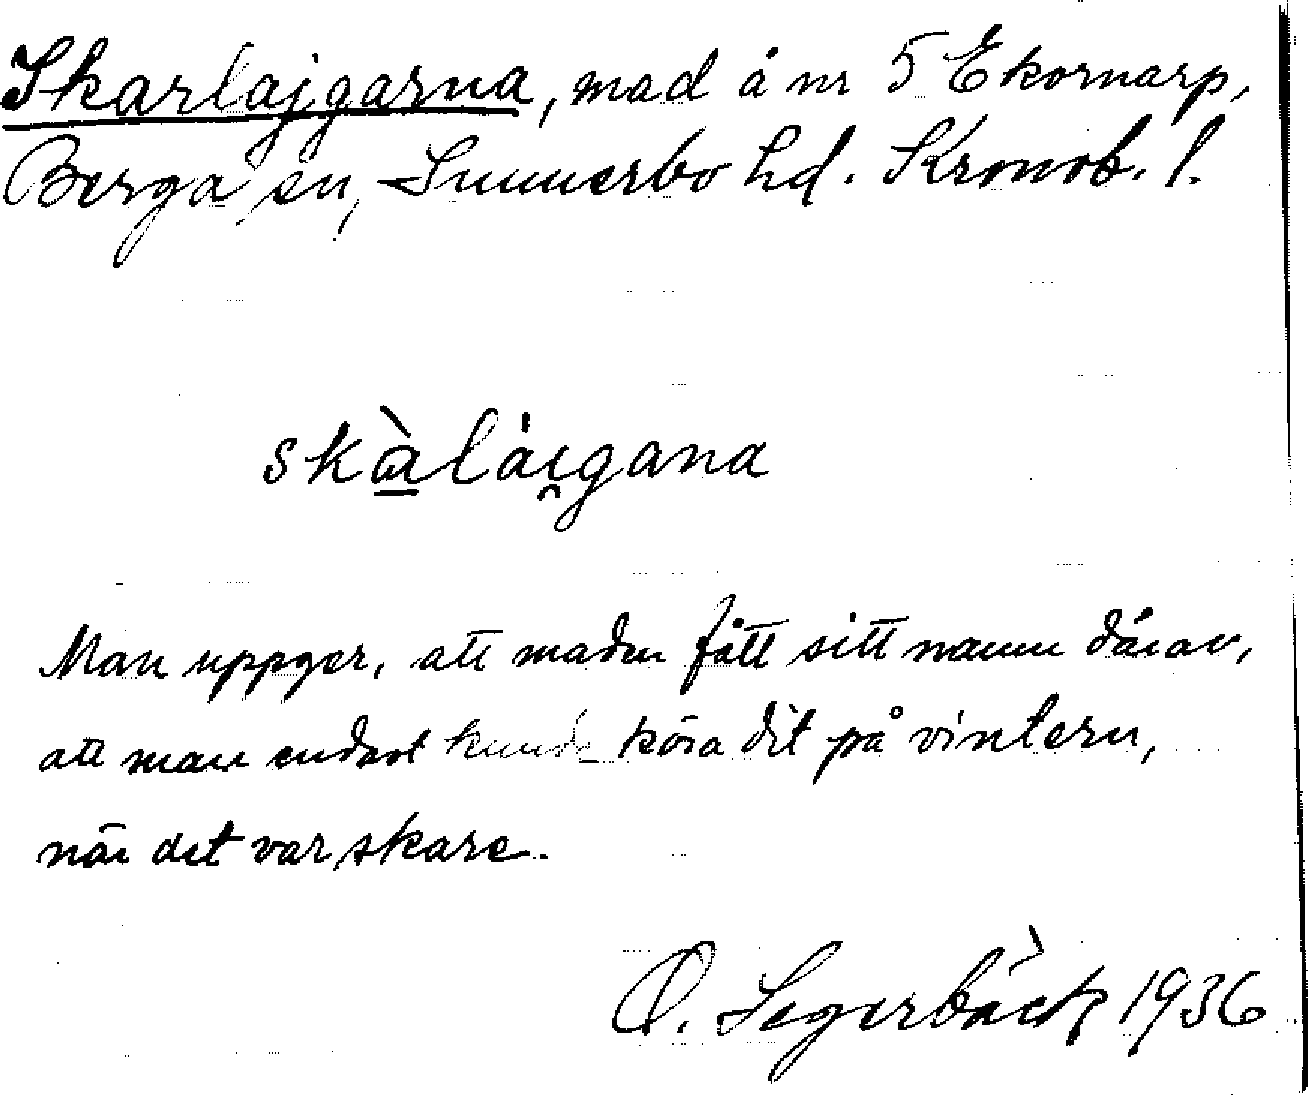 Skarlajgarna, mad å nr 5 Ekornarp,
Berga sn, Sunnerbo hd. Kronob. l.
skàláıgana
Man uppger, att maden fått sitt namn därav,
att man endast kunde köra dit på vintern,
när det var skare.
O. Segerbäck 1936